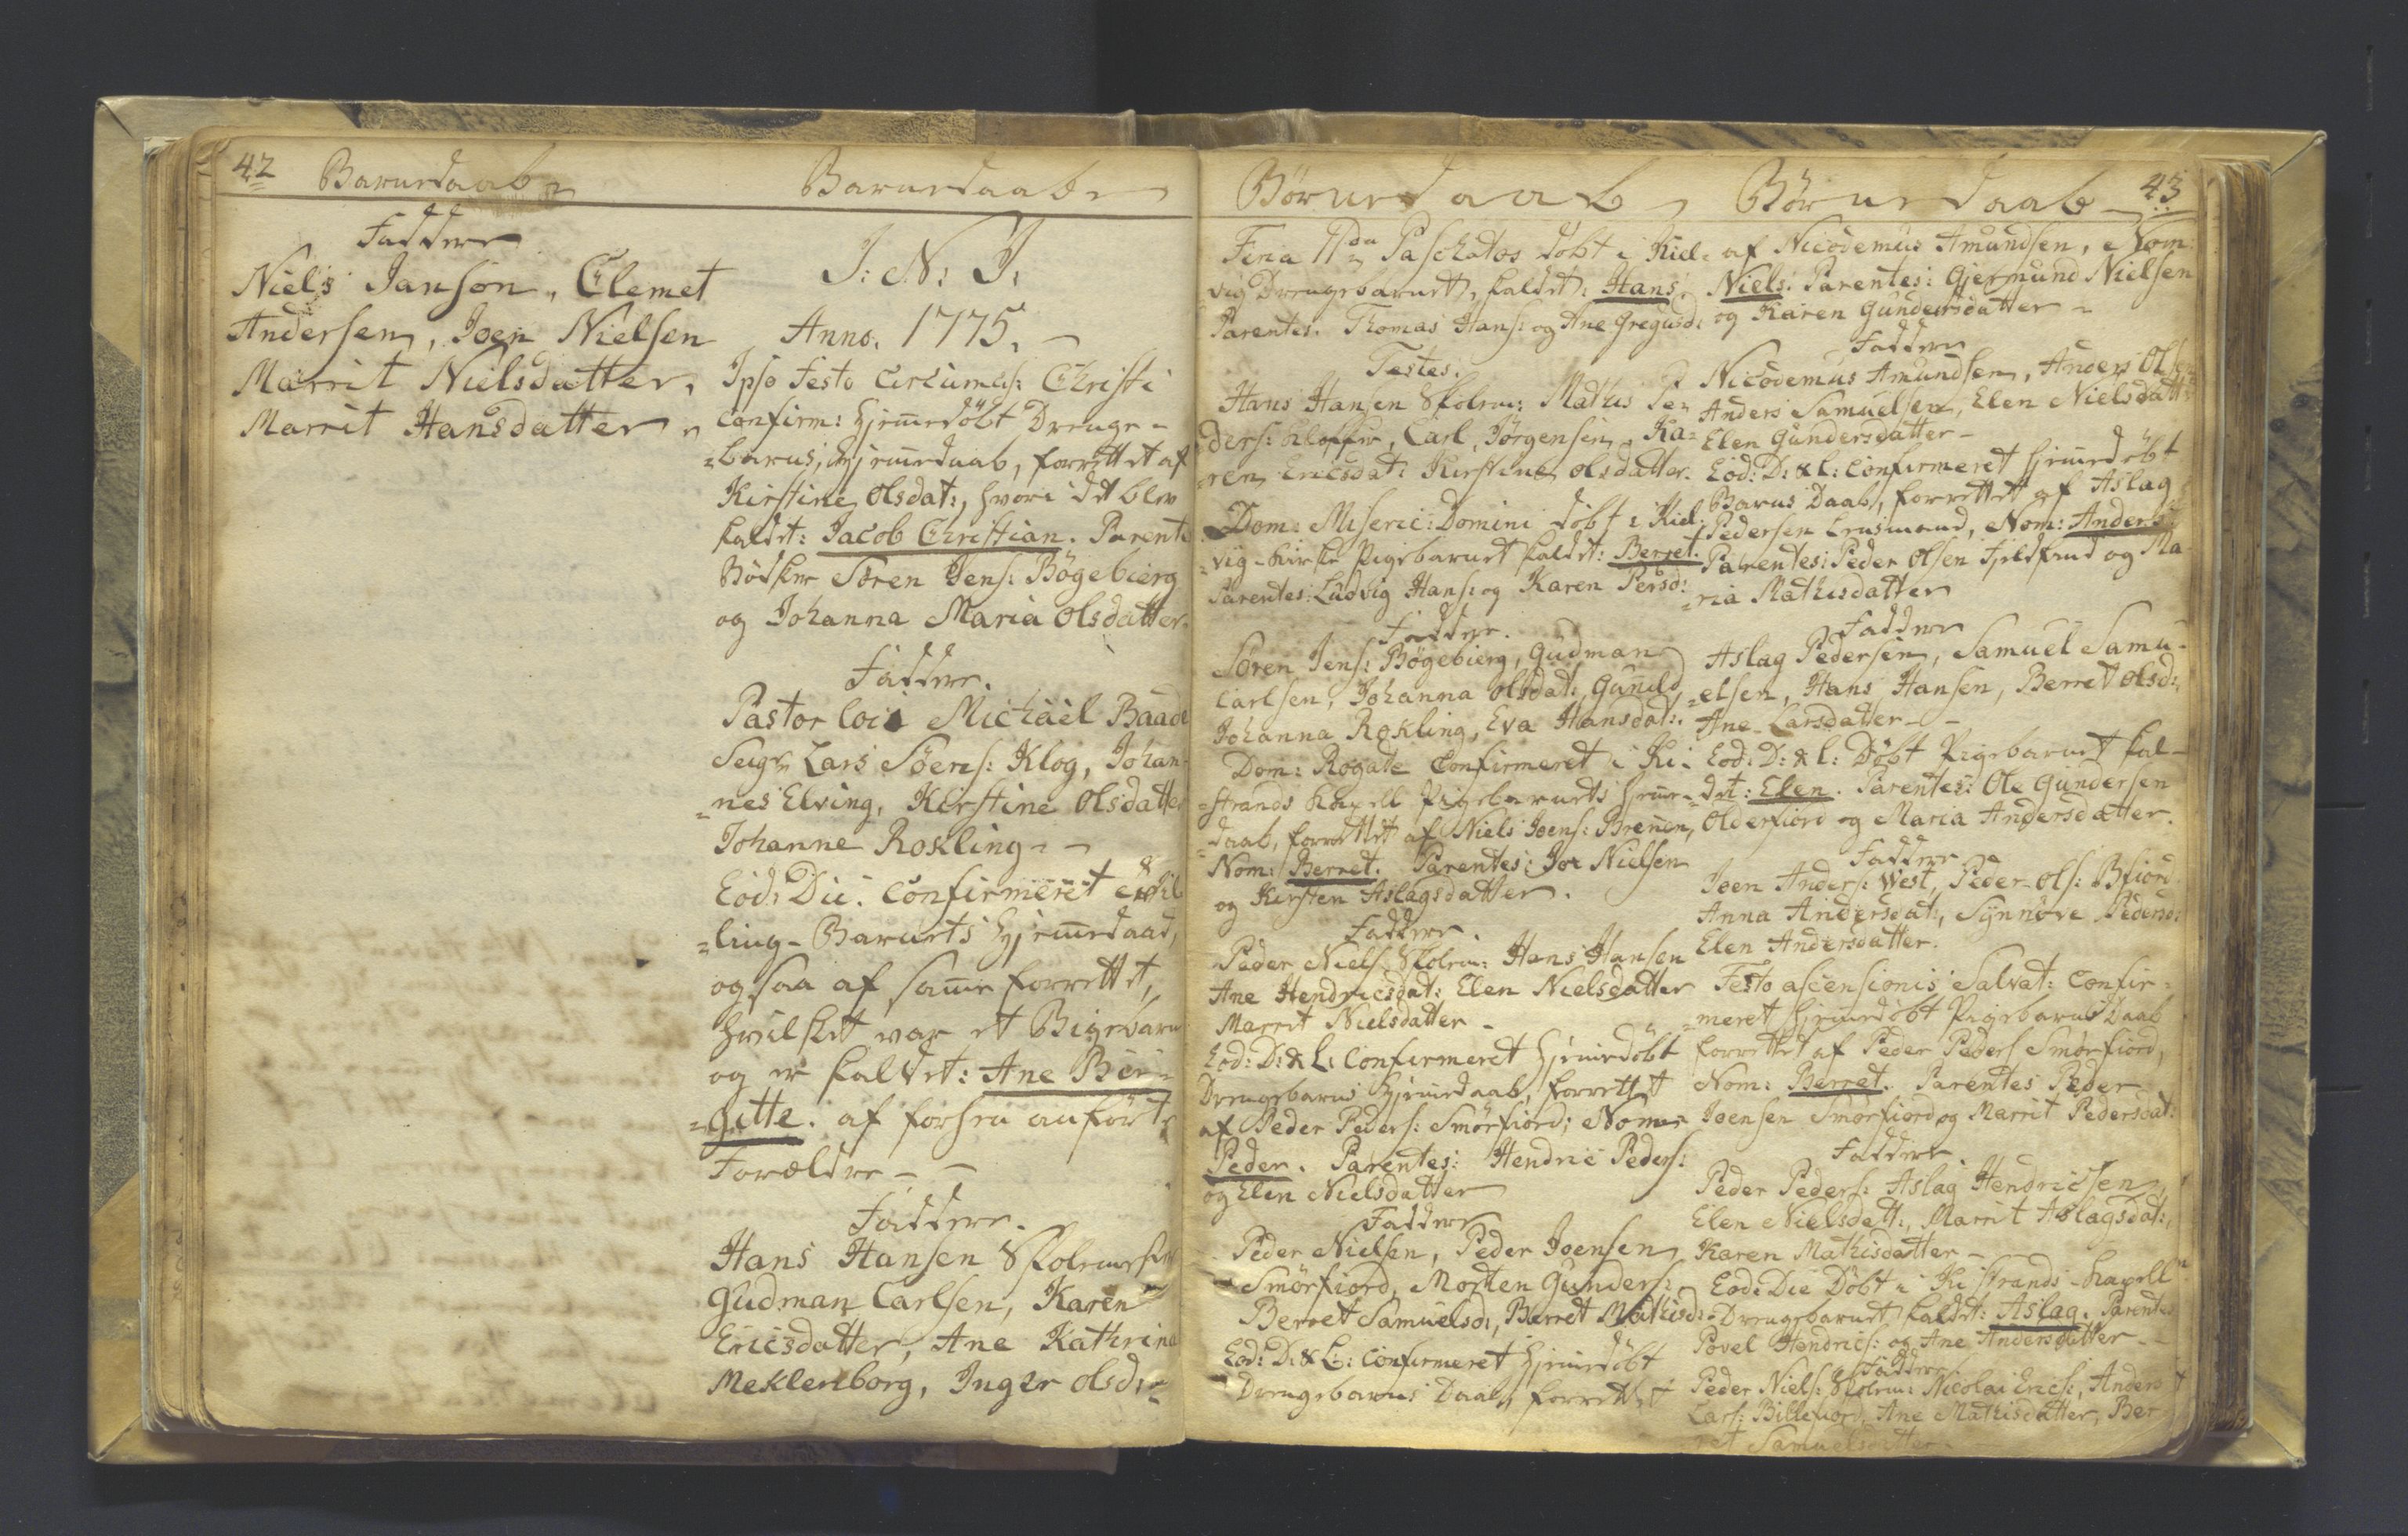 42 Barnedaab
Faddere
Niels Janson, Clemet
Andersen, Joen Nielsen
Marrit Nielsdatter,
Marrit Hansdatter
Barnedaab
J: N: J:
Anno. 1775.
Ipso Festo Circumcis: Christi
Confirm: hjemedöbt Drenge-
=barns, hjemedaab, forrettet af
Kirstine Olsdat:, hvori det blev
kaldet: Jacob Christian. Parent:
Bödker Sören Jens: Bögebierg
og Johanna Maria Olsdatter.
Faddere.
Pastor loci Michael Baade
Seigr Lars Söens: Klog, Johan-
=nes Elving, Kirstine Olsdatter
Johanne Rokling - -
Eod: Die. Confirmeret
=ling-Barnets hjemedaab,
ogsaa af samme forrettet,
hvilket var et Pigebarn
og er kaldet: Ane Bir-
=gitte. af forhen anförte
Forældre - -
Faddere.
Hans Hansen Skolemester
Gudman Carlsen, Karen
Ericsdatter, Ane Kathrina
Meklenborg, Inger Olsd:
Börnedaab
Feria IIda Paschatos döbt i Kiel-
vig Drengebarnet, kaldet: Hans.
Parentes. Thomas Hans: og Ane Gregusd:
Testes.
Hans Hansen Skolem: Mathis Pe-
ders: Klokker, Carl Jörgensen, Ka-
=ren Ericsdat: Kirstine Olsdatter.
Dom: Miseric: Domini döbt i Kiel-
=vig-Kirke Pigebarnet kaldet: Berret.
Parentes: Ludvig Hans: og Karen Persd:
Faddere.
Sören Jens: Bögebierg, Gudman
Carlsen, Johanna Olsdat:, Gunild
Johanna Rokling, Eva Hansdat:.
Dom: Rogate Confirmeret i Ki-
=strands Kapell Pigebarnets hjeme-
=daab, forrettet af Niels Joens: Brenen,
Nom: Berret. Parentes: Joe Nielsen
og Kirsten Aslagsdatter.
Faddere.
Peder Niels: Skolem: Hans Hansen
Ane Hendricsdat: Elen Nielsdatter
Marrit Nielsdatter -
Eod: D: & L: Confirmeret hjemedöbt
Drengebarns hjemedaab, forrettet
af Peder Peders: Smörfiord; Nomine
Peder. Parentes: Hendric Peders:
og Elen Nielsdatter
Faddere
Peder Nielsen, Peder Joensen
Smörfiord, Morten Gunders:
Berret Samuelsd:, Berret Mathisd:
Eod: D: & L: Confirmeret hjemedöbt
Drengebarns Daab, forrettet
Börnedaab 43
af Nicodemus Amundsen, Nom:
Niels. Parentes: Gjermund Nielsen
og Karen Gundersdatter -
Faddere
Nicodemus Amundsen, Anders Olsen
Anders Samuelsen, Elen Nielsdatt:
Elen Gundersdatter -
Eod: D: & L: Confirmeret hjemedöbt
Barns Daab, forrettet af Aslag
Pedersen Lensmand, Nom: Anders
Parentes: Peder Olsen Fieldfind og Ma-
=ria Mathisdatter
Faddere
Aslag Pedersen, Samuel Samu-
=elsen, Hans Hansen, Berret Olsd:,
Ane Larsdatter - -
Eod: D: & L: Döbt Pigebarnet kal-
=det: Elen. Parentes: Ole Gundersen
Olderfiord og Maria Andersdatter.
Faddere
Joen Anders: West, Peder Ols: Bfiord
Anna Andersdat:, Synnöve Pedersd:
Elen Andersdatter.
Festo ascensionis Salvat: Confir-
=meret hjemedöbt Pigebarns Daab
forrettet af Peder Peders Smörfiord,
Nom: Berret. Parentes Peder
Joensen Smörfiord og Marrit Pedersdat:
Faddere.
Peder Peders: Aslag Hendricsen,
Elen Nielsdatt:, Marrit Aslagsdat:,
Karen Mathisdatter -
Eod: Die Döbt i Kistrands-Kapell
Drengebarnet kaldet: Aslag. Parentes
Povel Hendrics: og Ane Andersdatter -
Faddere
Peder Niels: Skolem: Nicolai Erics:, Anders
Lars: Billefiord, Ane Mathisdatter, Ber-
ret Samuelsdatter